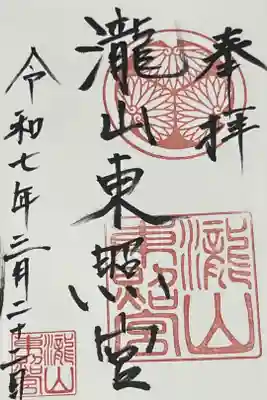 奉拝
瀧山東照宮
瀧山
東照宮
令和七年三月二十日
瀧山
東照宮